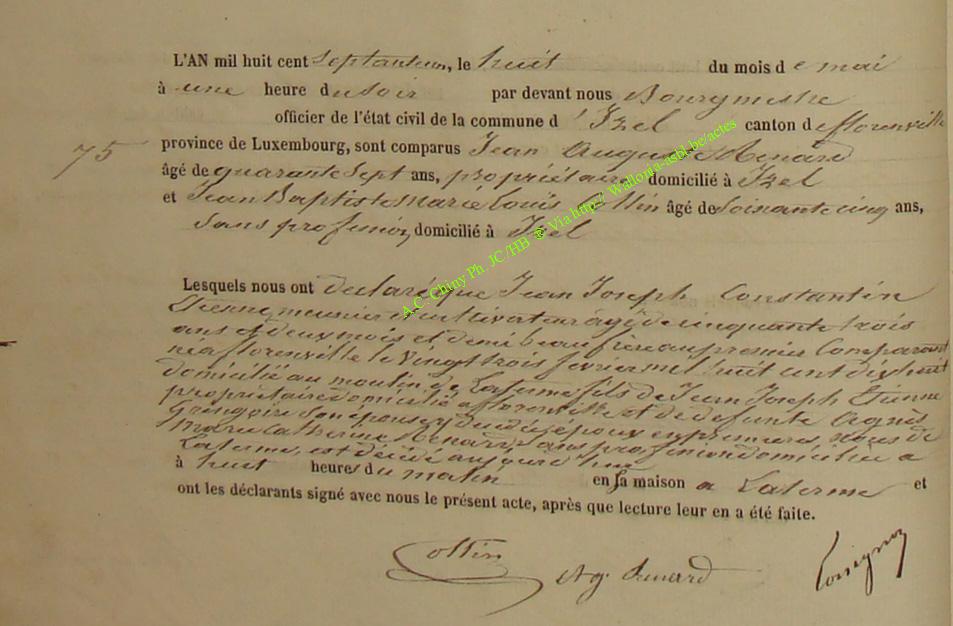 L'AN mil huit cent septanteun, le huit du mois d e mai
à une heure du soir par devant nous Bourgmestre
officier de l'état civil de la commune d 'Izel canton de florenville
75
province de Luxembourg, sont comparus Jean Auguste Renard
âgé de quarante sept ans, propriétaire domicilié à Izel
et Jean Baptiste Marie Louis Collin âgé de soixante cinq ans,
sans profession, domicilié à Izel
Lesquels nous ont déclaré que Jean Joseph Constantin
Etienne meunier et cultivateur agé de cinquante trois
ans et deux mois et demi beau frère au premier Comparant
né a florenville le vingt trois fevrier mil huit cent dix huit
domicilié au moulin de Laterme fils de Jean Joseph Etienne
propriétaire domicilié a florenville et de defunte Agnès
Grégoire son épouse, époux en premières noces de
Marie Catherine Renard sans profession domiciliée a
Laterme, est décédé aujourd'hui
à huit heures du matin en sa maison a Laterme et
ont les déclarants signé avec nous le présent acte, après que lecture leur en a été faite.
Collin Ag. Renard
A.C. Chiny Ph. JC /HB @ Via http:// Wallonia-asbl.be/actes